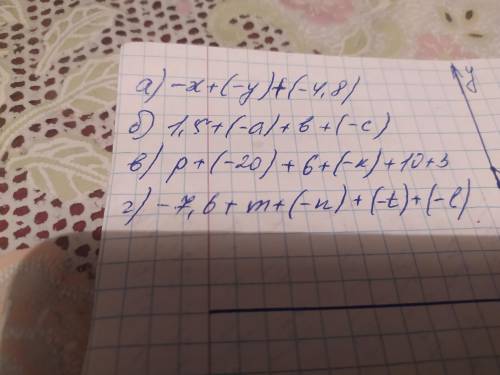 а) -x+(-y)+(-4,8)
y
б) 1,5+(-a)+b+(-c)
в) p+(-20)+6+(-k)+10+3
г) -7,6+m+(-n)+(-t)+(-l)